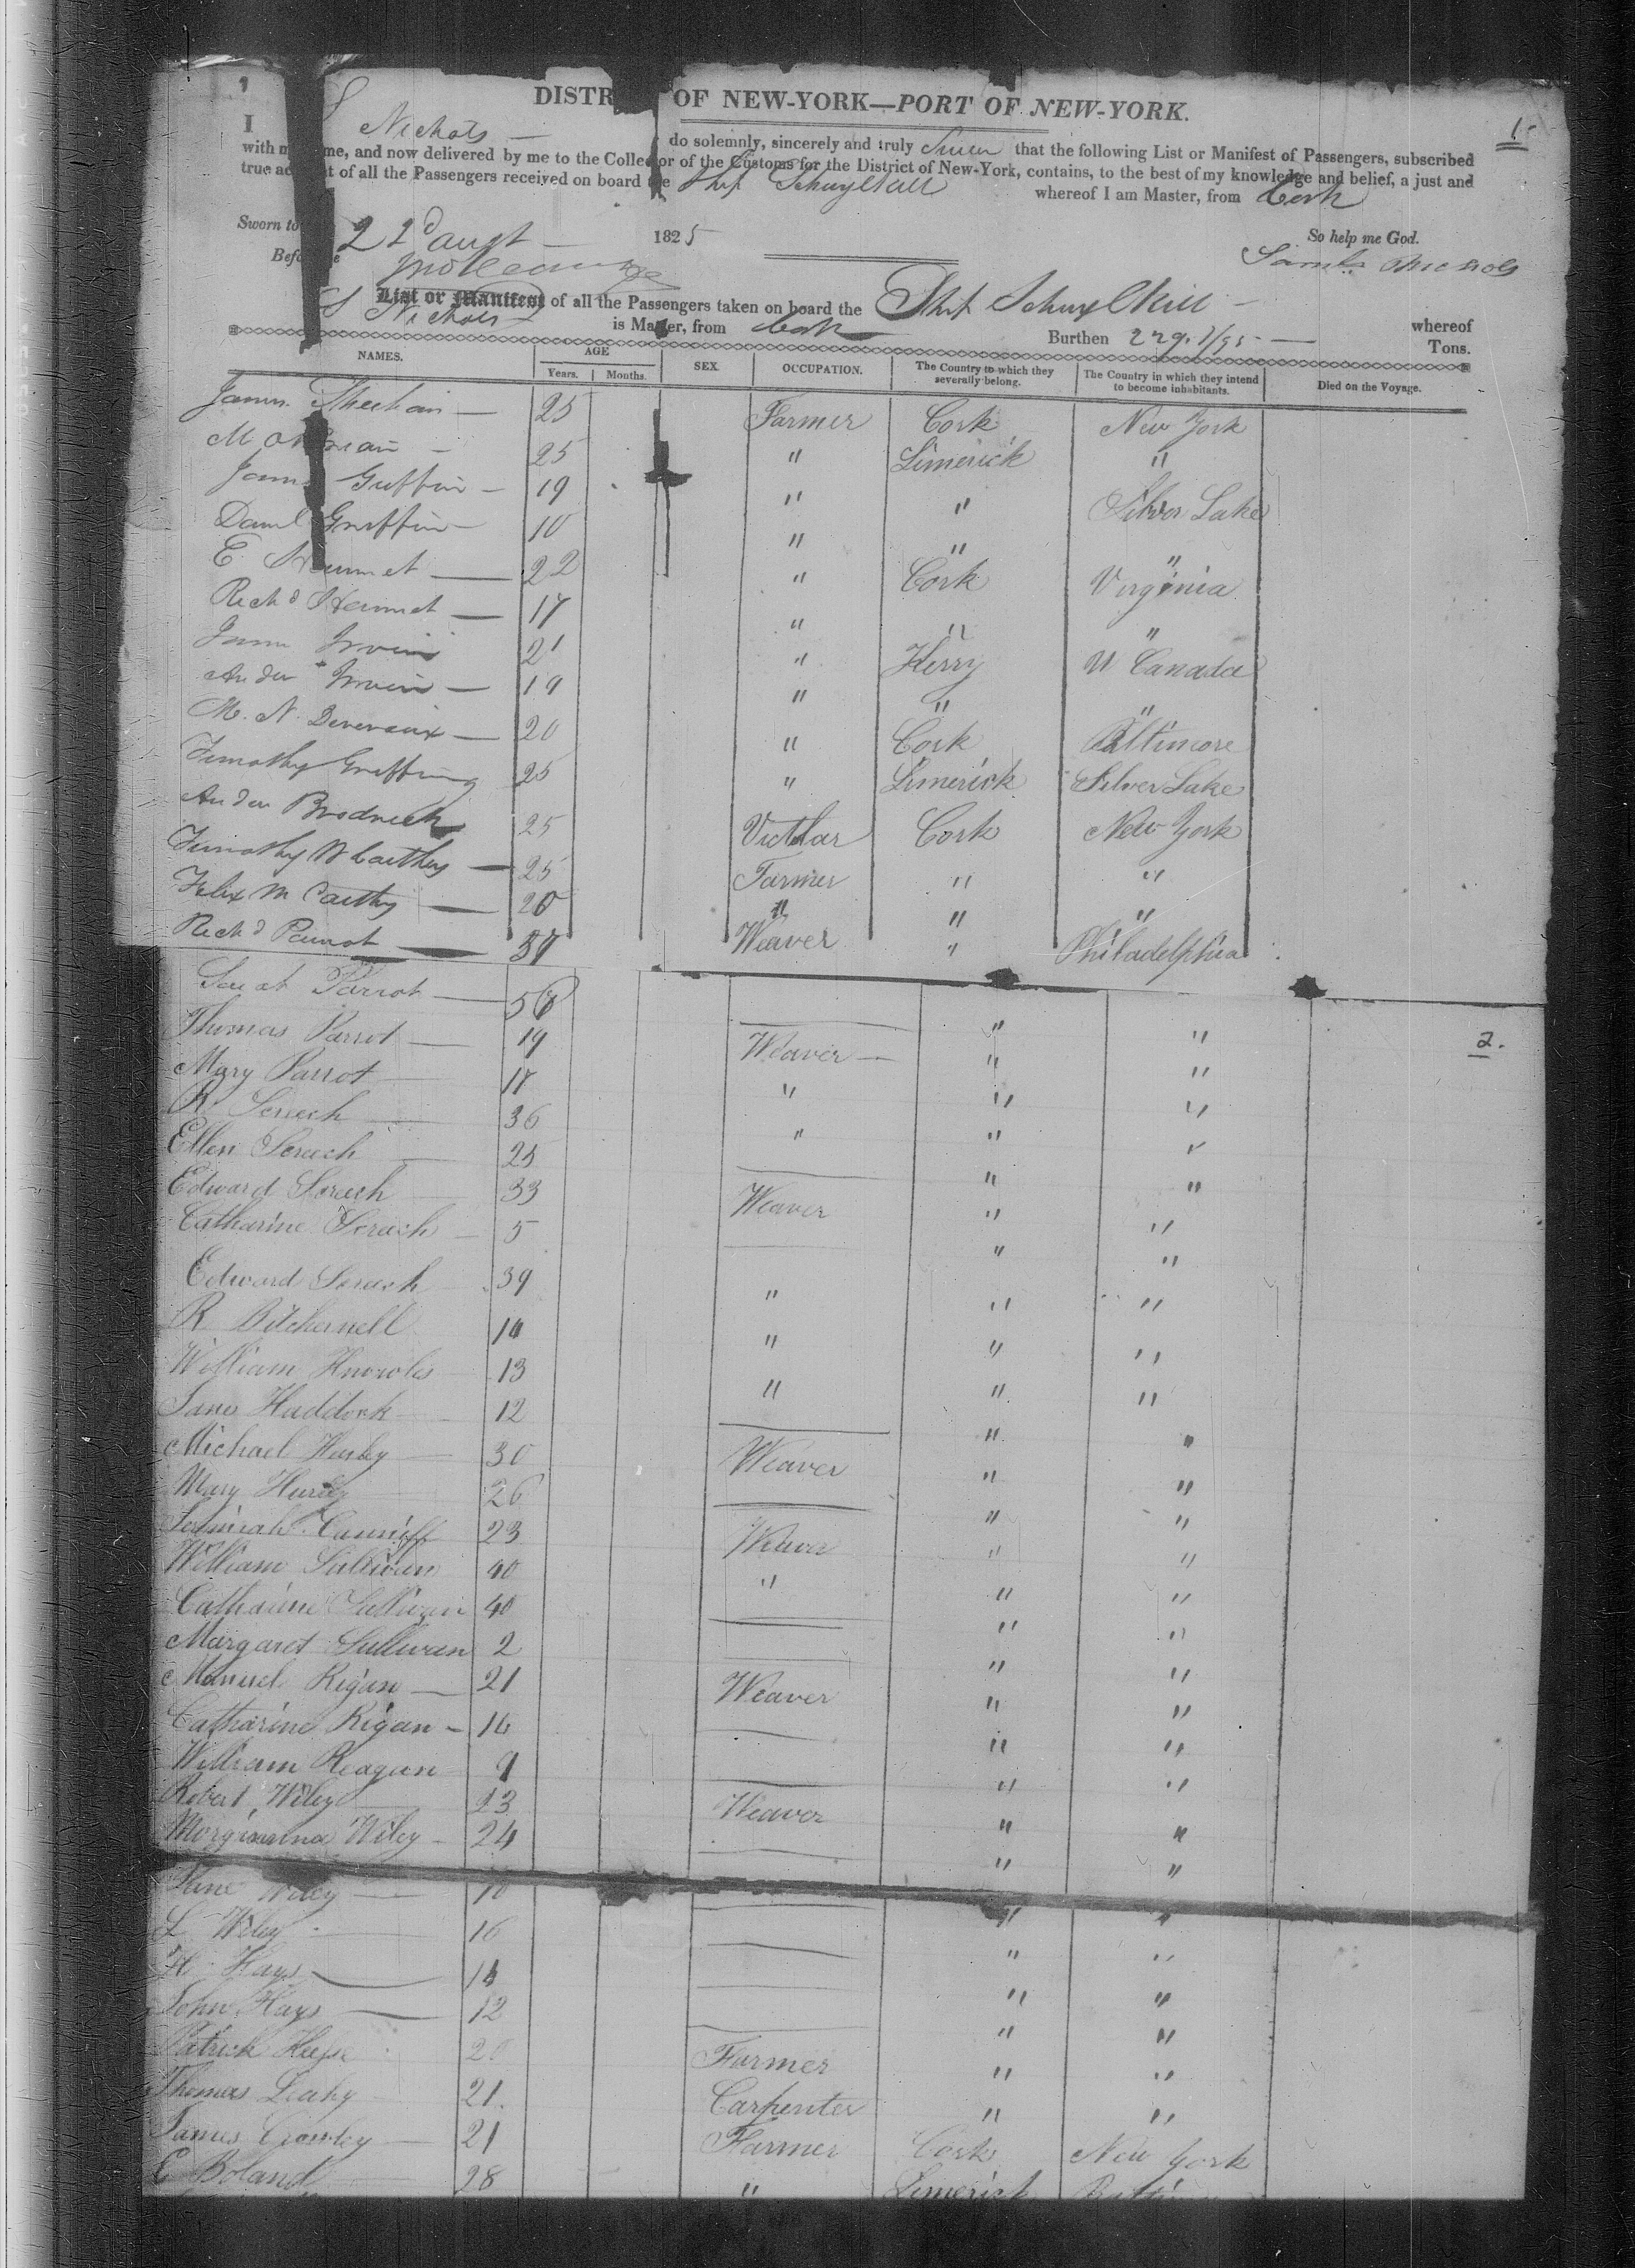 1
DISTR OF NEW-YORK—PORT OF NEW-YORK.
1-
I S Nichols — do solemnly, sincerely and truly Swear that the following List or Manifest of Passengers, subscribed
with m me, and now delivered by me to the Collector of the Customs for the District of New-York, contains, to the best of my knowledge and belief, a just and
true ac t of all the Passengers received on board the Ship Schuylkill whereof I am Master, from Cork
Sworn to 22d augt — 1825 So help me God.
Before Saml Nichols
List or Manifest of all the Passengers taken on board the Ship Schuylkill — whereof
S Nichols is Master, from Cork Burthen Tons.
NAMES. AGE SEX. OCCUPATION. The Country to which they severally belong. The Country in which they intend to become inhabitants. Died on the Voyage.
Years. Months.
James Sheehan — 25 Farmer Cork New York
M 25 " Limerick "
James Griffin — 19 " " Silver Lake
Danl Griffin — 10 " " "
E. 22 " Cork Virginia
Richd 17 " " "
21 " Kerry U Canada
19 " " "
M. N. Devereaux — 20 " Cork Baltimore
Timothy Griffin 25 " Limerick Silver Lake
Brodrick 25 Victlar Cork New York
Timothy McCarthy — 25 Farmer " "
Felix McCarthy — 20 " " "
Richd Parrot — 37 Weaver " Philadelphia
Parrot — 56 — " "
2.
Thomas Parrot — 19 Weaver — " "
Mary Parrot — 17 " " "
R 36 " " "
Ellen 25 — " "
Edward 33 Weaver " "
Catharine 5 — " "
Edward 39 " " "
R Bitchernell 10 " " "
William Knowles 13 " " "
Jane Haddock 12 — " "
Michael Hurley — 30 Weaver " "
Mary Hurley 26 — " "
Jeremiah Cunniff 23 Weaver " "
William Sullivan 40 " " "
Catharine Sullivan 40 — " "
Margaret Sullivan 2 — " "
Manuel Rigan — 21 Weaver " "
Catharine Rigan — 16 — " "
William Reagun 9 — " "
Robert Wiley 23 Weaver " "
Morgianna Wiley — 24 — " "
Jane Wiley — 10 — " "
L Wiley — 16 — " "
H Hays — 14 — " "
John Hays — 12 — " "
Patrick 20 Farmer " "
Thomas Leahy 21 Carpenter " "
James Crowley — 21 Farmer Cork New York
E Boland 28 " Limerick